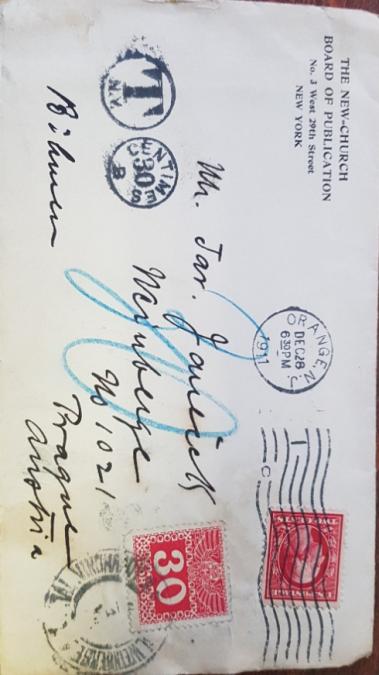 THE NEW-CHURCH
BOARD OF PUBLICATION
No. 3 West 29th Street
NEW YORK
ORANGE, N.J.
DEC 28
6 30 PM
1911
T
N.Y.
CENTIMES
30
B
Mr. Jar. Janeček
No 1021
Prague
Austria
30